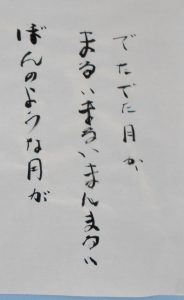 でたでた月が
まるいまるいまんまるい
ぼんのような月が